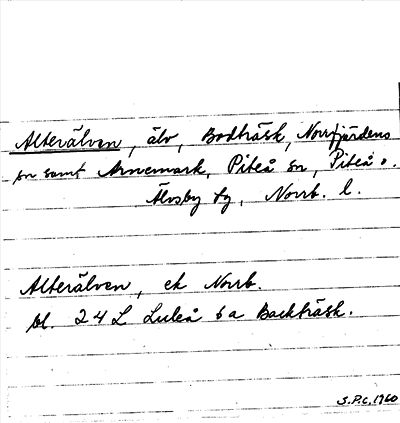 Alterälven, älv, Bodträsk, Norrfjärdens
sn samt Arnemark, Piteå sn, Piteå o.
Älvsby tg, Norrb. l.
Alterälven, ek Norrb.
bl. 24 L Luleå 6a Backträsk.
S.P.C. 1960